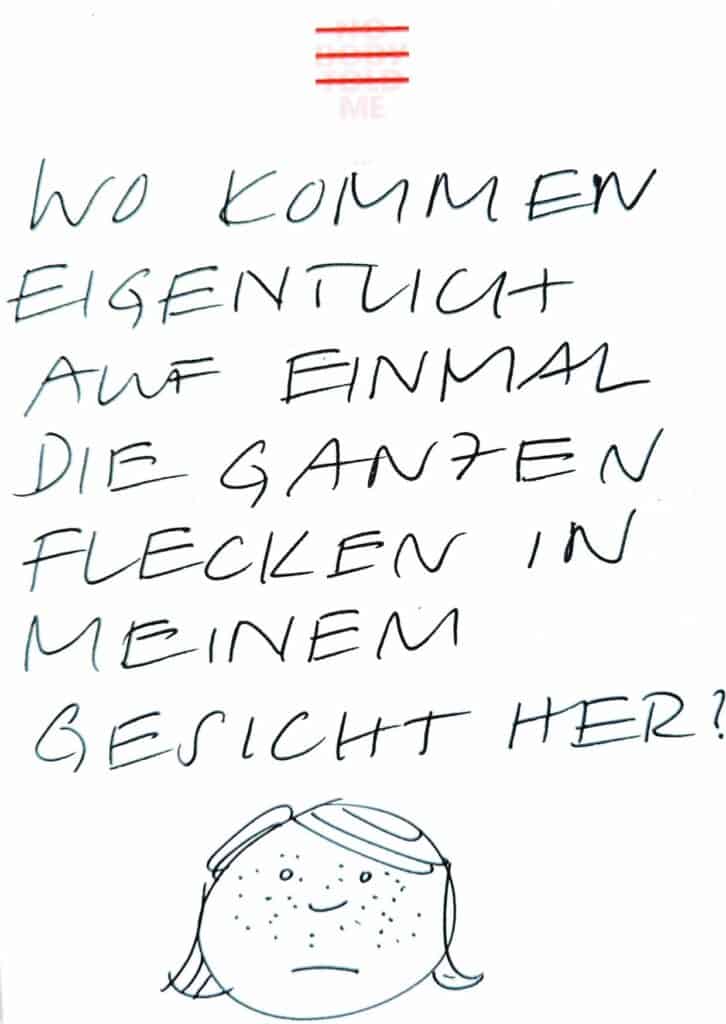 NO
BODY
TOLD
ME
WO KOMMEN
EIGENTLICH
AUF EINMAL
DIE GANZEN
FLECKEN IN
MEINEM
GESICHT HER?